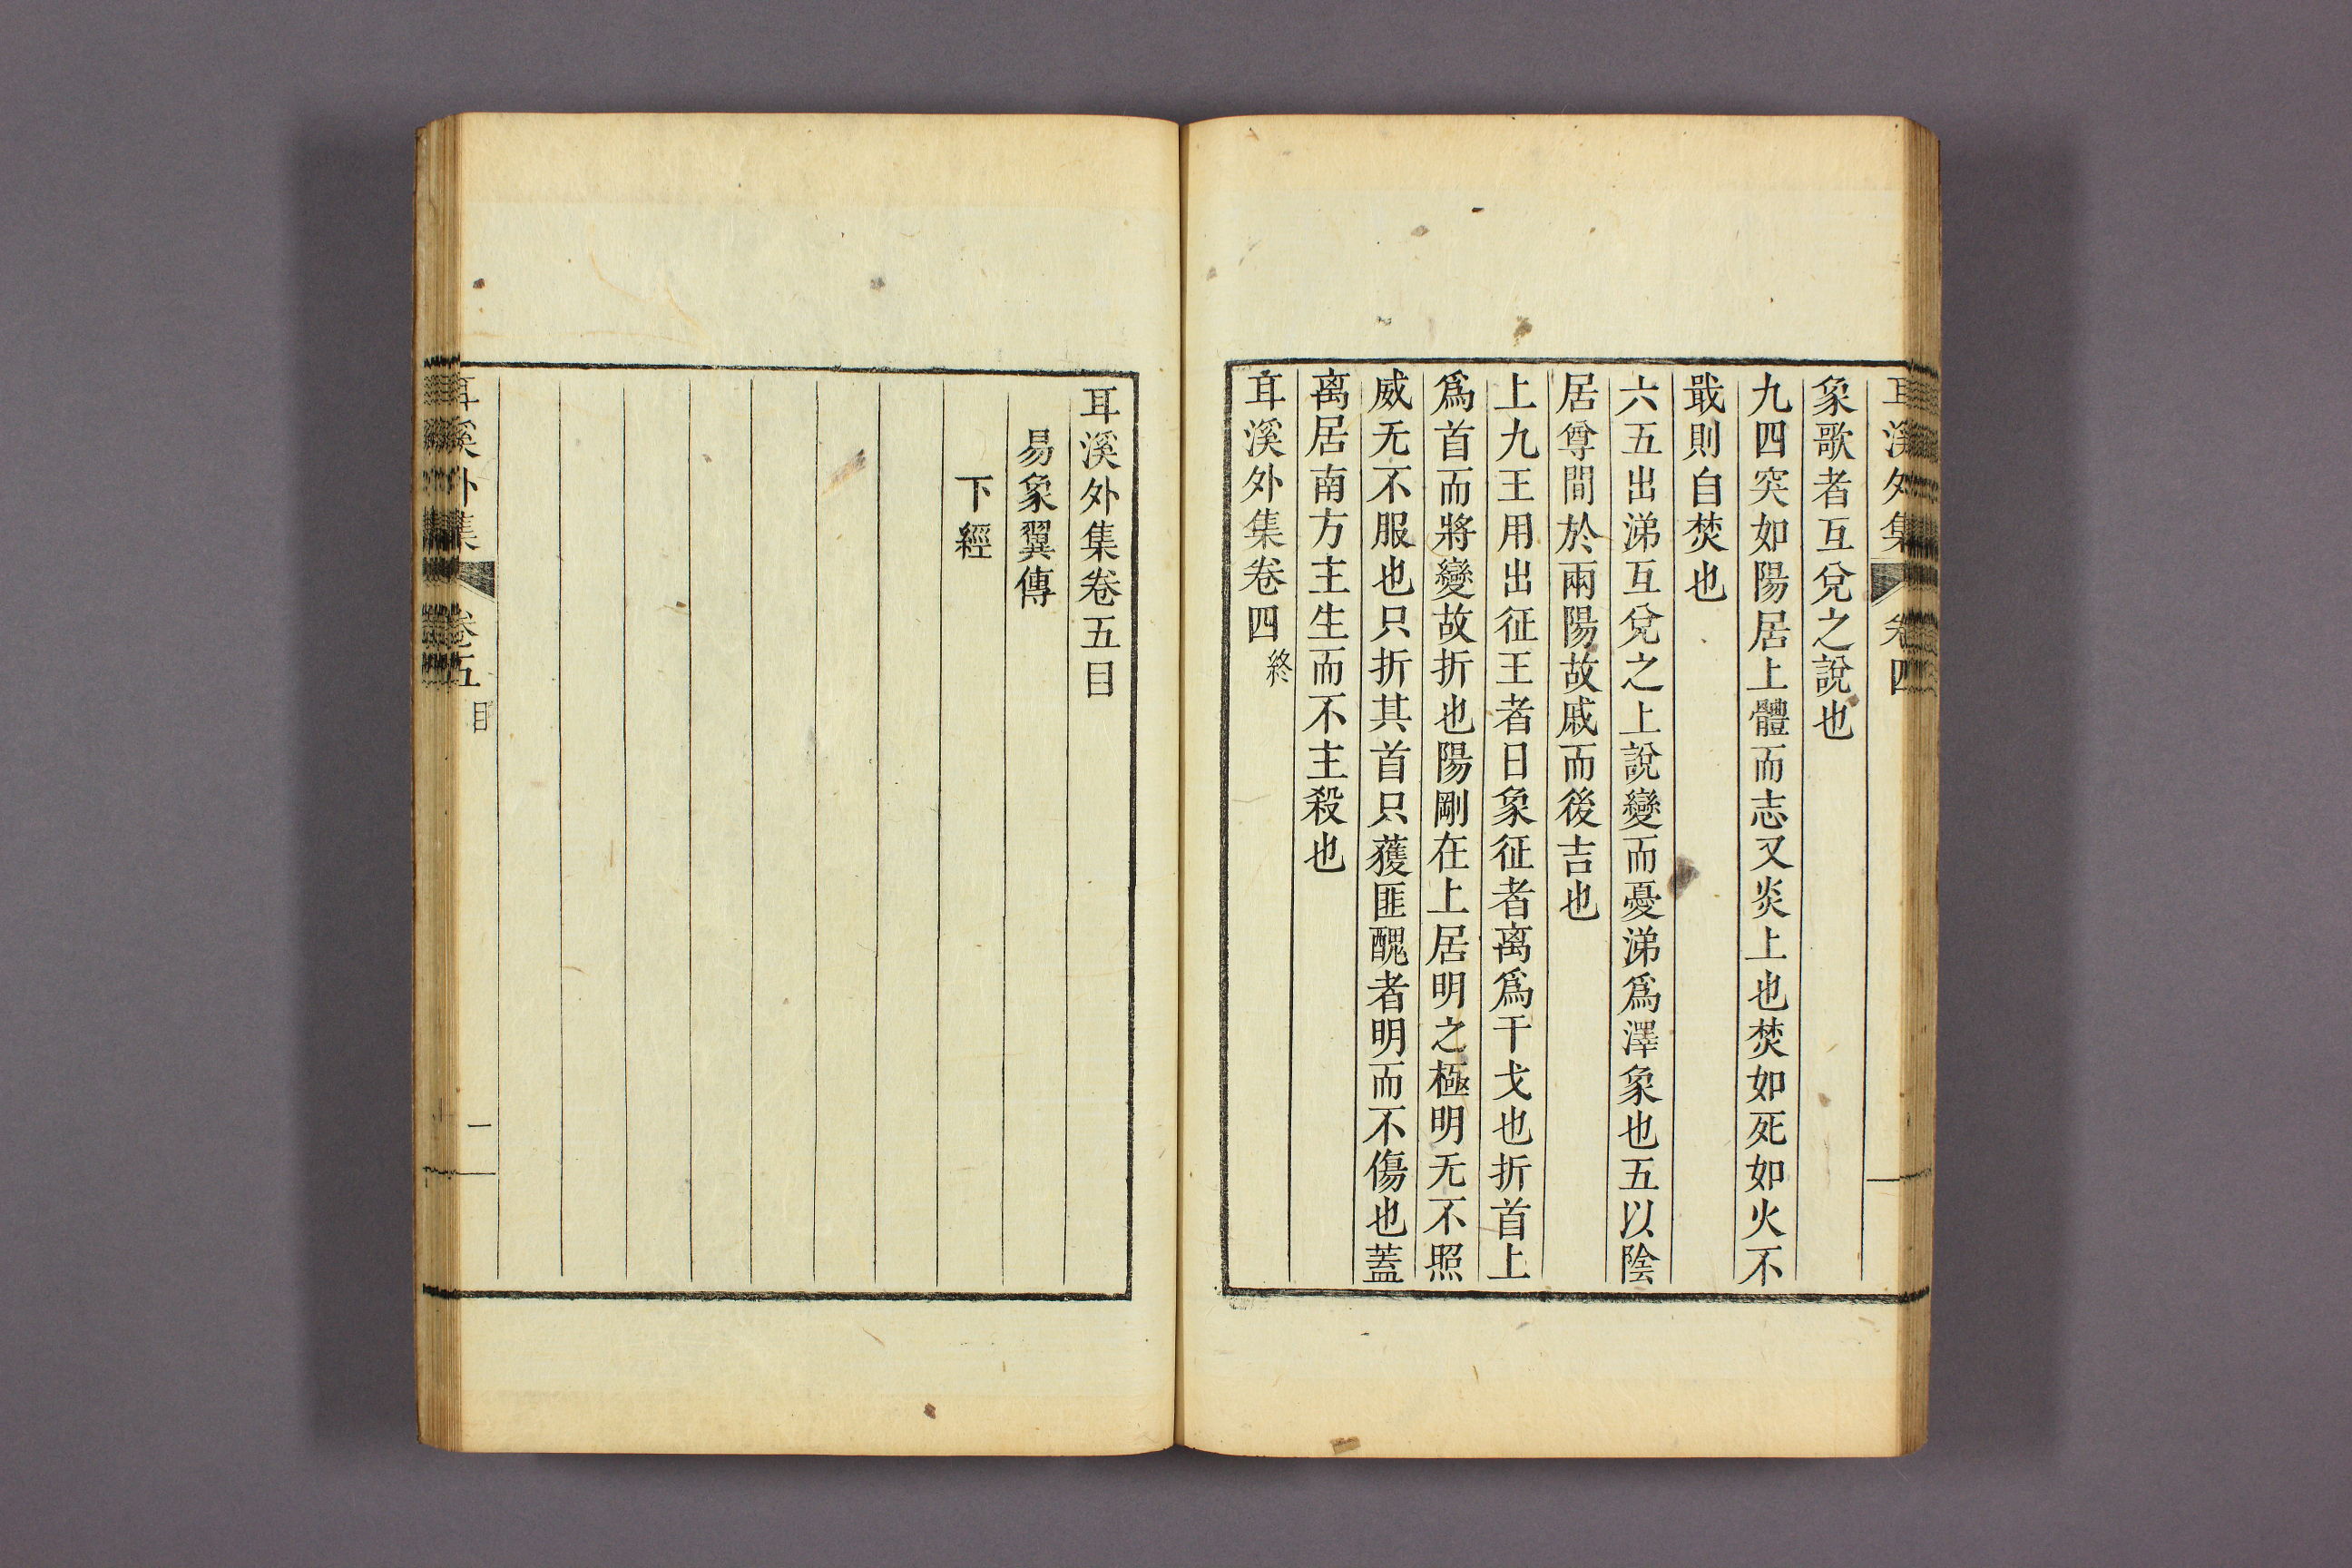 耳溪外集 卷四
象歌者互兌之說也
九四突如陽居上體而志又炎上也焚如死如火不
戢則自焚也
六五出涕互兌之上說變而憂涕爲澤象也五以陰
居尊間於兩陽故戚而後吉也
上九王用出征王者日象征者离爲干戈也折首上
爲首而將變故折也陽剛在上居明之極明无不照
威无不服也只折其首只蒦匪醜者明而不傷也蓋
离居南方主生而不主殺也
耳溪外集卷四終
耳溪外集卷五目
易象翼傳
下經
耳溪外集 卷五 目 一